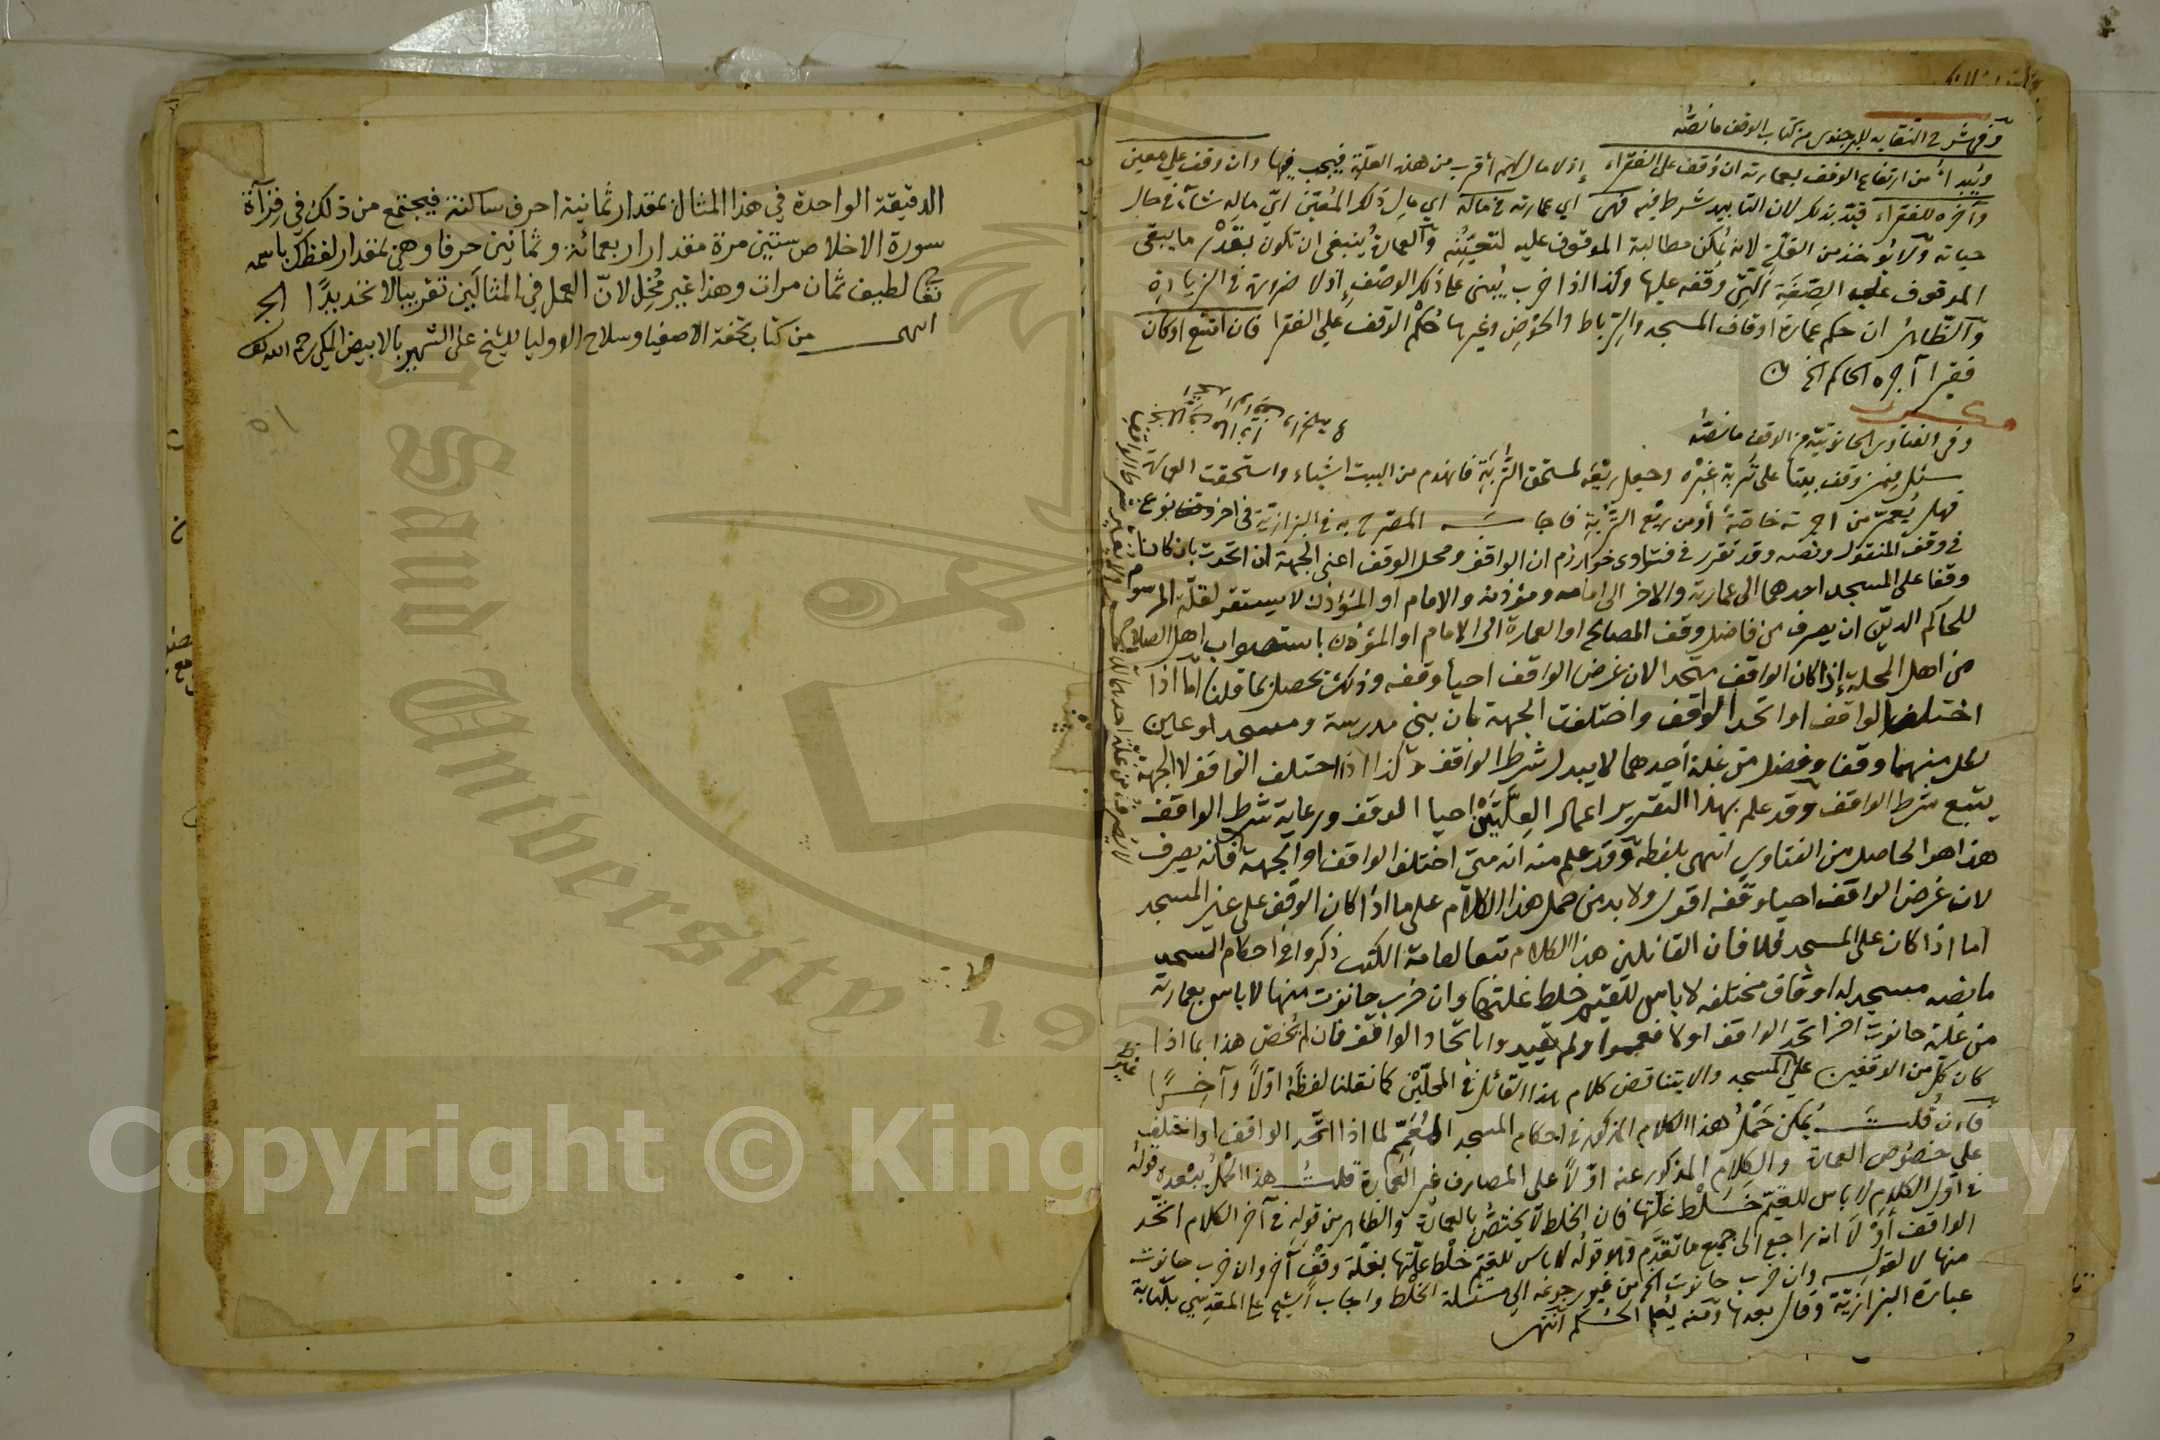 وفي شرح النقاية للبرجندي من كتاب الوقف ما نصه
ويبدأ من ارتفاع الوقف بعمارته ان وقف على الفقراء إذ لا مال لهم أقرب من هذه الغلة فيجب فيها وان وقف على معين
وآخره للفقراء قيد بذلك لان التابيد شرط فيه فهى اي عمارته في ماله اي مال ذلك المعين ايّ ماله شاء في حال
حياته ولا يؤخذ من الغلة لانه يمكن مطالبة الموقوف عليه لتعينه والعمارة ينبغي ان تكون بقدر ما يبقى
الموقوف على الصفة التي وقفه عليها وكذا اذا خرب يبنى على ذلك الوصف إذ لا ضرورة في الزيادة
والظاهر ان حكم عمارة اوقاف المسجد والرباط والحوض وغيرها حكم الوقف على الفقرا فان امتنع او كان
فقيرا آجره الحاكم الخ
وفى الفتاوى الحانوتية من الوقف ما نصه
سئل فيمن وقف بيتا على تربة غيره وجعل ريعه لمستحق التربة فانهدم من البيت اشياء واستحقت العمارة
فهل يعمر من اجرته خاصة أو من ريع التربة فاجاب المصرح به في البزازية في اخر نوع
في وقف المنقول ونصه وقد تقرر في فتاوى خوارزم ان الواقف ومحل الوقف اعنى الجهة ان اتحدت بان كانا
وقفا على المسجد احدهما الى عمارته والاخر الى امامه ومؤذنه والامام او المؤذن لا يستقر لقلة المرسوم
للحاكم الدين ان يصرف من فاضل وقف المصالح او العمارة الى الامام او المؤذن باستصواب اهل الصلاح
من اهل المحلة إذا كان الواقف متحدا لان غرض الواقف احياء وقفه وذلك يحصل بما قلنا امّا اذا
اختلف الواقف او اتحد الواقف واختلفت الجهة بان بنى مدرسة ومسجدا وعين
لكل منهما وقفا وفضل من غلة أحدهما لا يبدل شرط الواقف وكذا اذا اختلف الواقف لا الجهة
يتبع شرط الواقف وقد علم بهذا التقرير اعمال الغلتين احيا الوقف ورعاية شرط الواقف
هذا هو الحاصل من الفتاوى انتهى بلفظه وقد علم منه انه متى اختلف الواقف او الجهة فانه يصرف
لان غرض الواقف احيا وقفه اقول ولا بد من حمل هذا الكلام على ما اذا كان الوقف على غير المسجد
اما اذا كان على المسجد فلا فان القائلين هذا الكلام تبعا لعامة الكتب ذكروا في احكام المسجد
ما نصه مسجد له اوقاف مختلفه لا باس للقيم خلط غلتها وان خرب حانوت منها لا باس بعمارته
من غلة حانوت اخر اتحد الواقف اولا فعمموا ولم يقيدوا باتحاد الواقف فان لم يخص هذا بما اذا
كان كل من الوقفين على المسجد والا يتناقض كلام هذا القائل في المحلين كما نقلنا لفظه اولا وآخرًا
فان قلت يمكن حمل هذا الكلام المذكور في احكام المسجد المعمم لما اذا اتحد الواقف او اختلف
على خصوص العمارة والكلام المذكور عنه اولاً على المصارف غير العمارة قلت هذا الحمل يبعده قوله
في اول الكلام لا باس للقيم خلط غلتها فان الخلط لا يختص بالعمارة والظاهر من قوله في آخر الكلام اتحد
الواقف أوْ لا انه راجع الى جميع ما تقدم وهو قوله لا باس للقيم خلط غلتها بغلة وقف آخر وان خرب حانوت
منها لا لقوله وان خرب حانوت الخ من غير رجوعه الى مسئلة الخلط واجاب الشيخ على المقدسي بكتابة
عبارة البزازية وقال بعدها ومنه يعلم الحكم انتهى
لا يصرف من غلة احدهما
الدقيقة الواحدة في هذا المثال بمقدار ثمانية احرف ساكنة فيجتمع من ذلك في قرآة
سورة الاخلاص ستين مرة مقدار اربعمائة وثمانين حرفا وهي بمقدار لفظك باسمه
تعالى لطيف ثمان مرات وهذا غير مخل لان العمل في المثالين تقريبا لا تحديدًا الخ
انتهى من كتاب تحفة الاصفيا وسلاح الاوليا للشيخ على الشهير بالابيض المكى رحمه الله
٥١
Copyright © King Saud University
King Saud University 1957